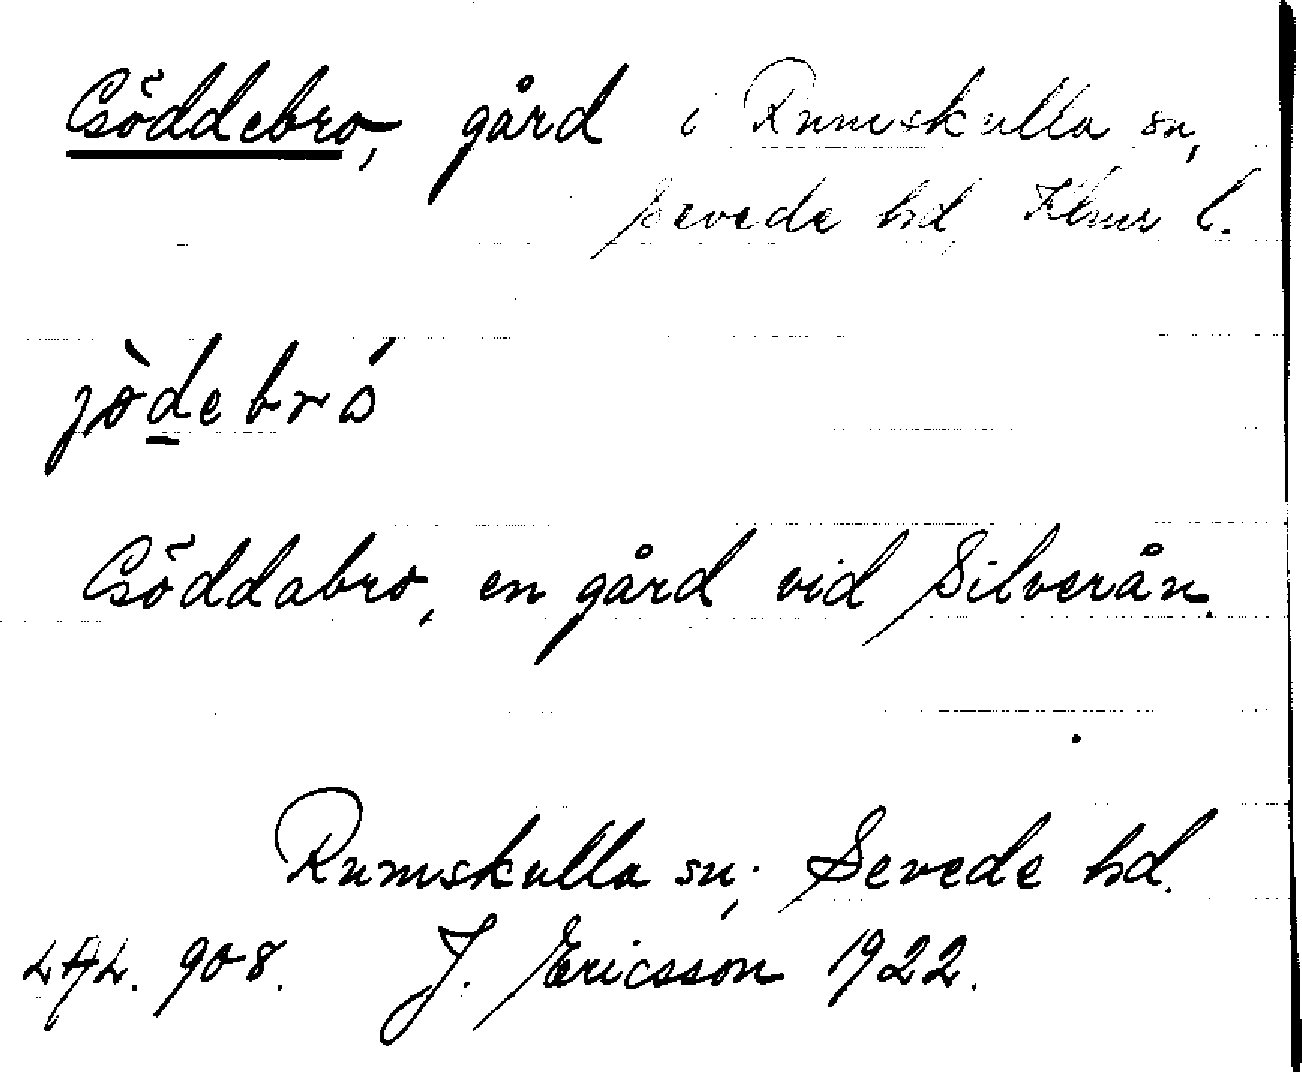 Göddebro, gård i Rumskulla sn,
Sevede hd, Klmr l.
jòd̲ebró
Göddabro, en gård vid Silverån.
Rumskulla sn; Sevede hd.
LAL. 908. J. Ericsson 1922.